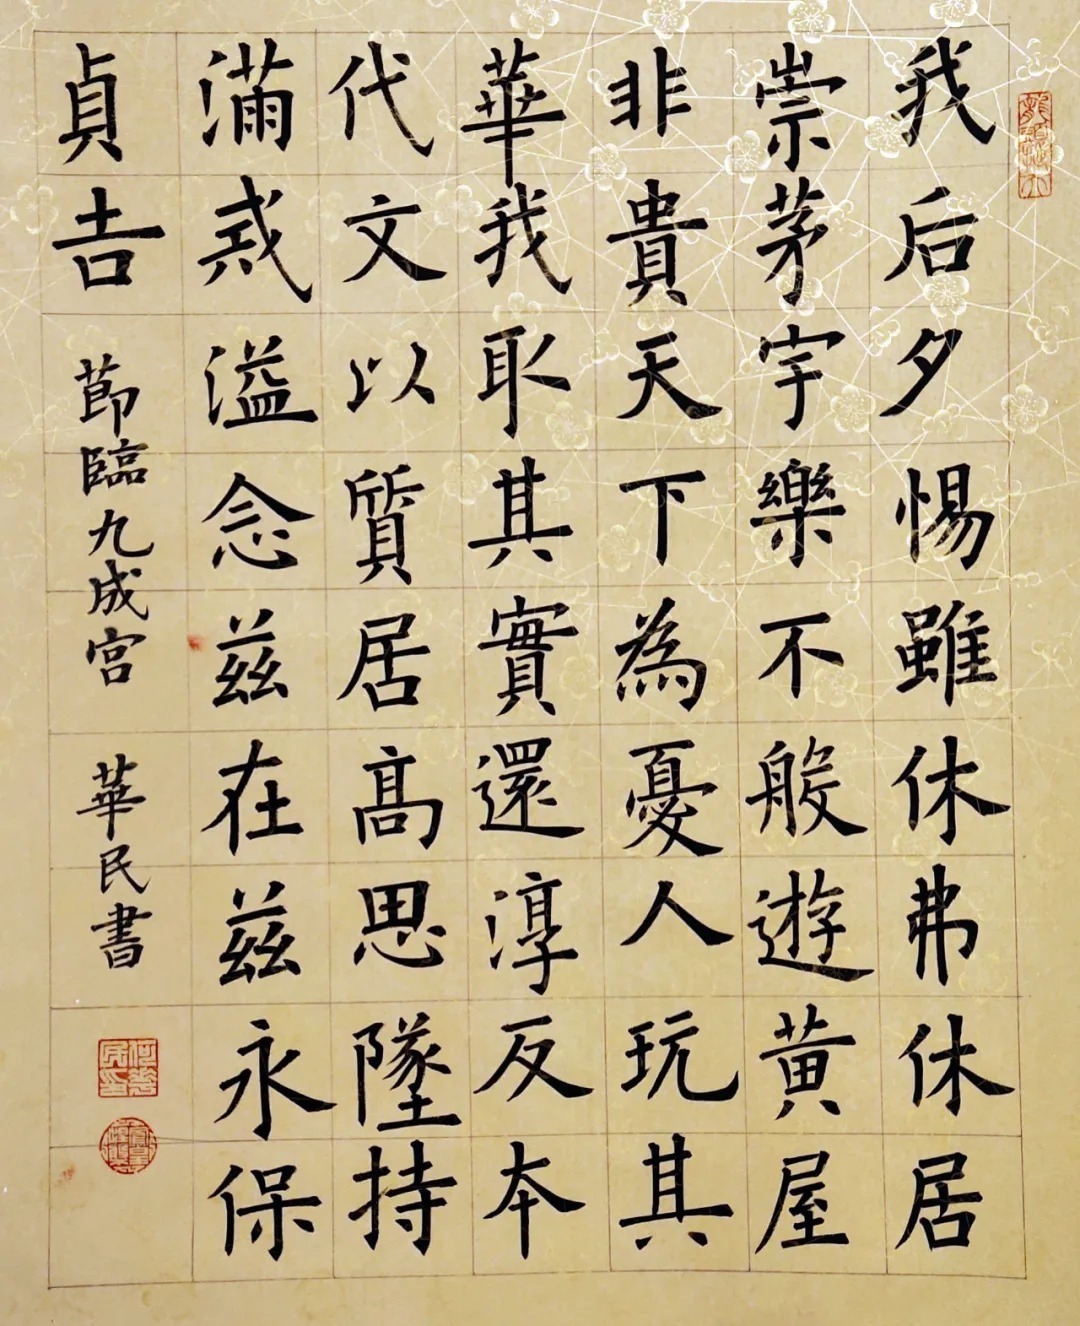 我后夕惕雖休弗休居
崇茅宇樂不般遊黄屋
非貴天下為憂人玩其
華我取其實還淳反本
代文以質居高思墜持
滿戒溢念兹在兹永保
貞吉
節臨九成宫
華民書